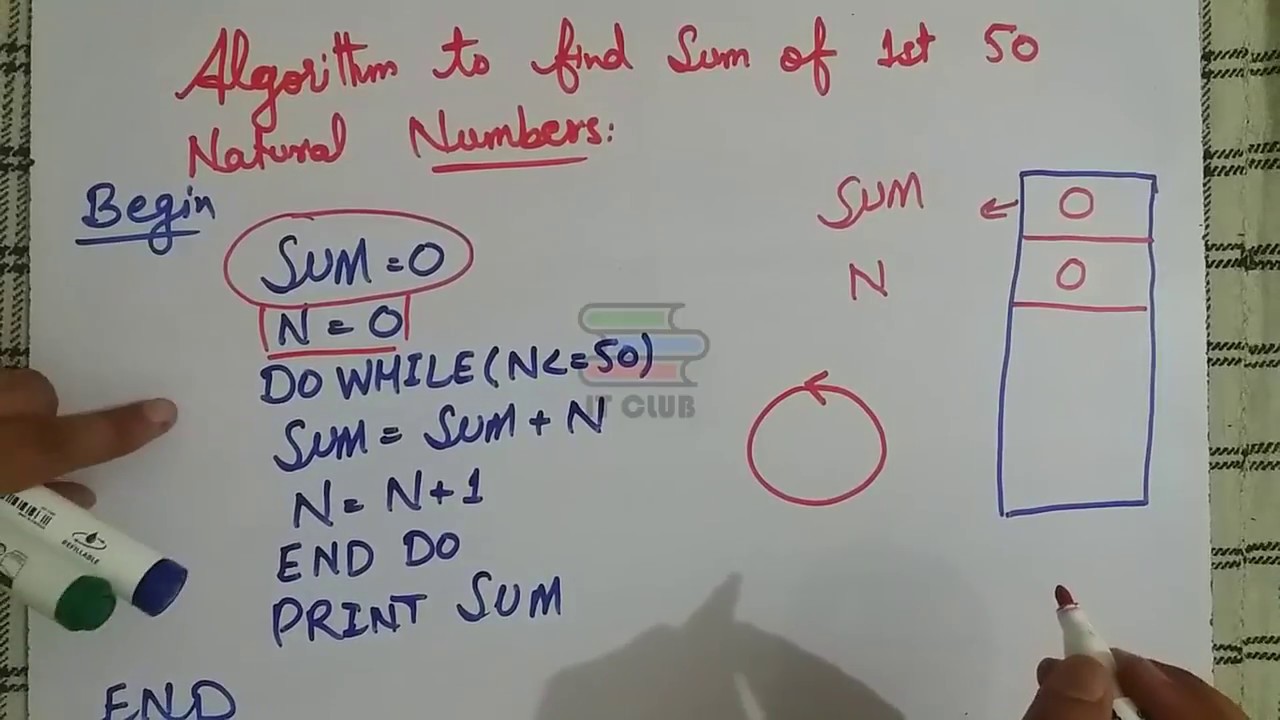 Algorithm to find Sum of 1st 50
Natural Numbers:
Begin
SUM = 0
N = 0
DO WHILE (N<=50)
SUM = SUM + N
N = N+1
END DO
PRINT SUM
END
SUM ← 0
N 0
IT CLUB
REFILLABLE